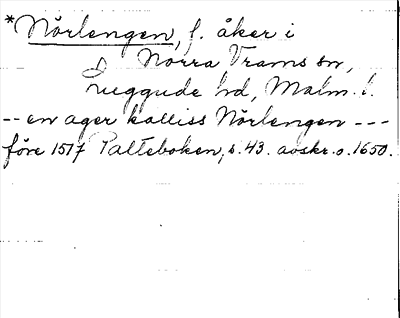 *Nörlengen, f. åker i
Norra Vrams sn,
Luggude hd, Malm. l.
-- en ager kalliss Nörlengen ---
före 1517 Palteboken, s. 43. avskr. o. 1650.